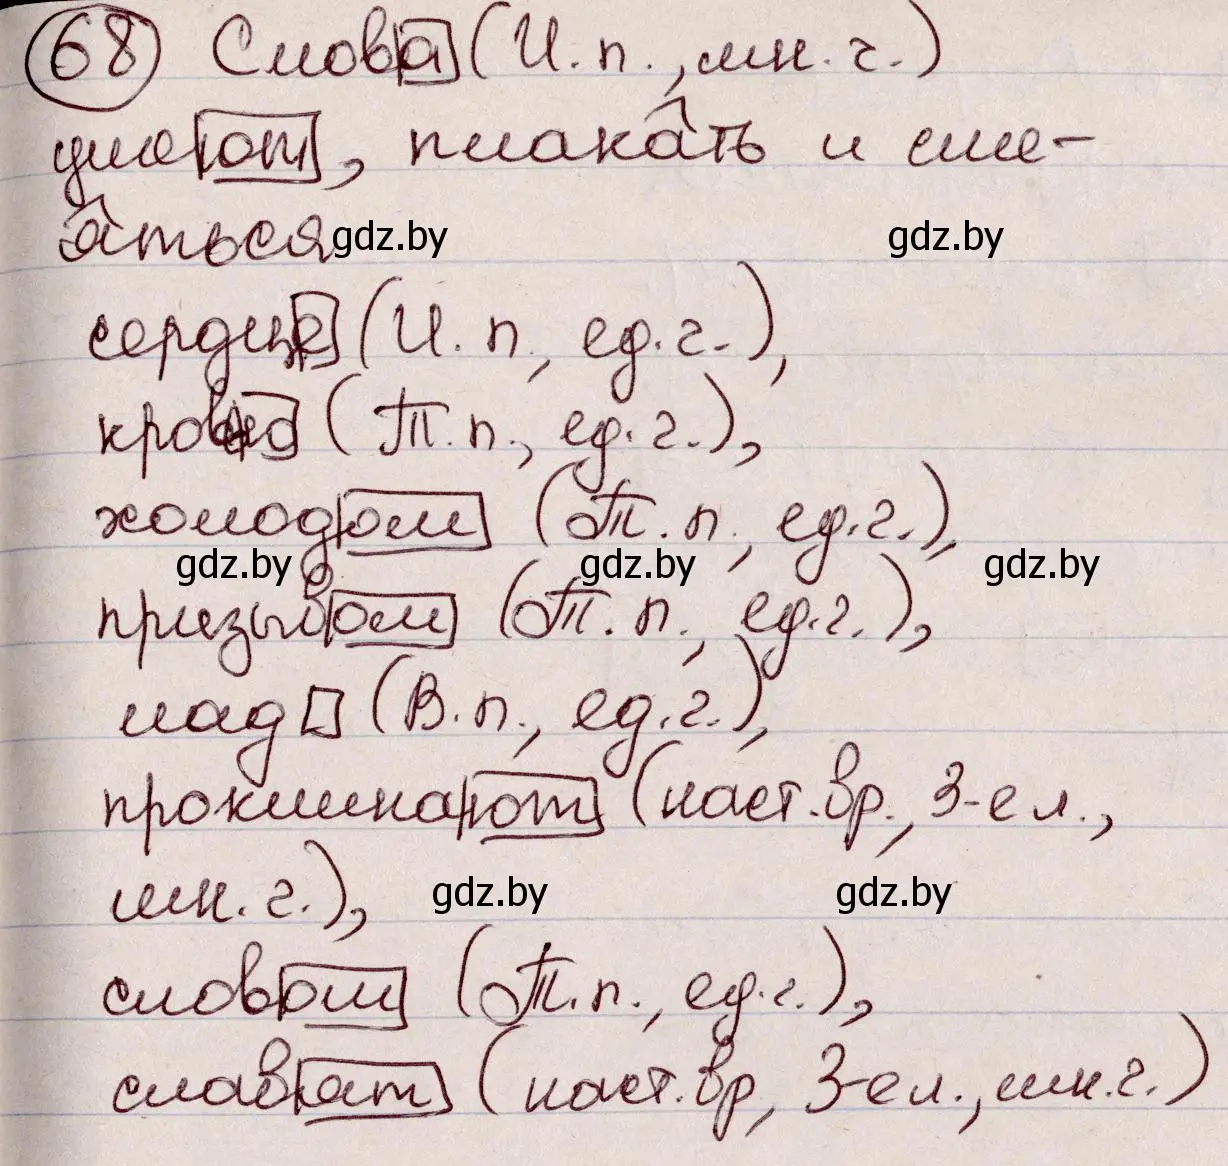 68 Слова (И.п., мн.ч.)
умеют, плакать и сме-
яться gdz.by gdz.by
сердце (И.п., ед.ч.),
(Т.п., ед.ч.),
холодом (Т.п., ед.ч.),
gdz.by gdz.by gdz.by
призывом (Т.п., ед.ч.),
лад (В.п., ед.ч.),
проклинают (наст.вр., 3-е л.,
мн.ч.), gdz.by gdz.by
словом (Т.п., ед.ч.),
славят (наст.вр, 3-е л., мн.ч.)